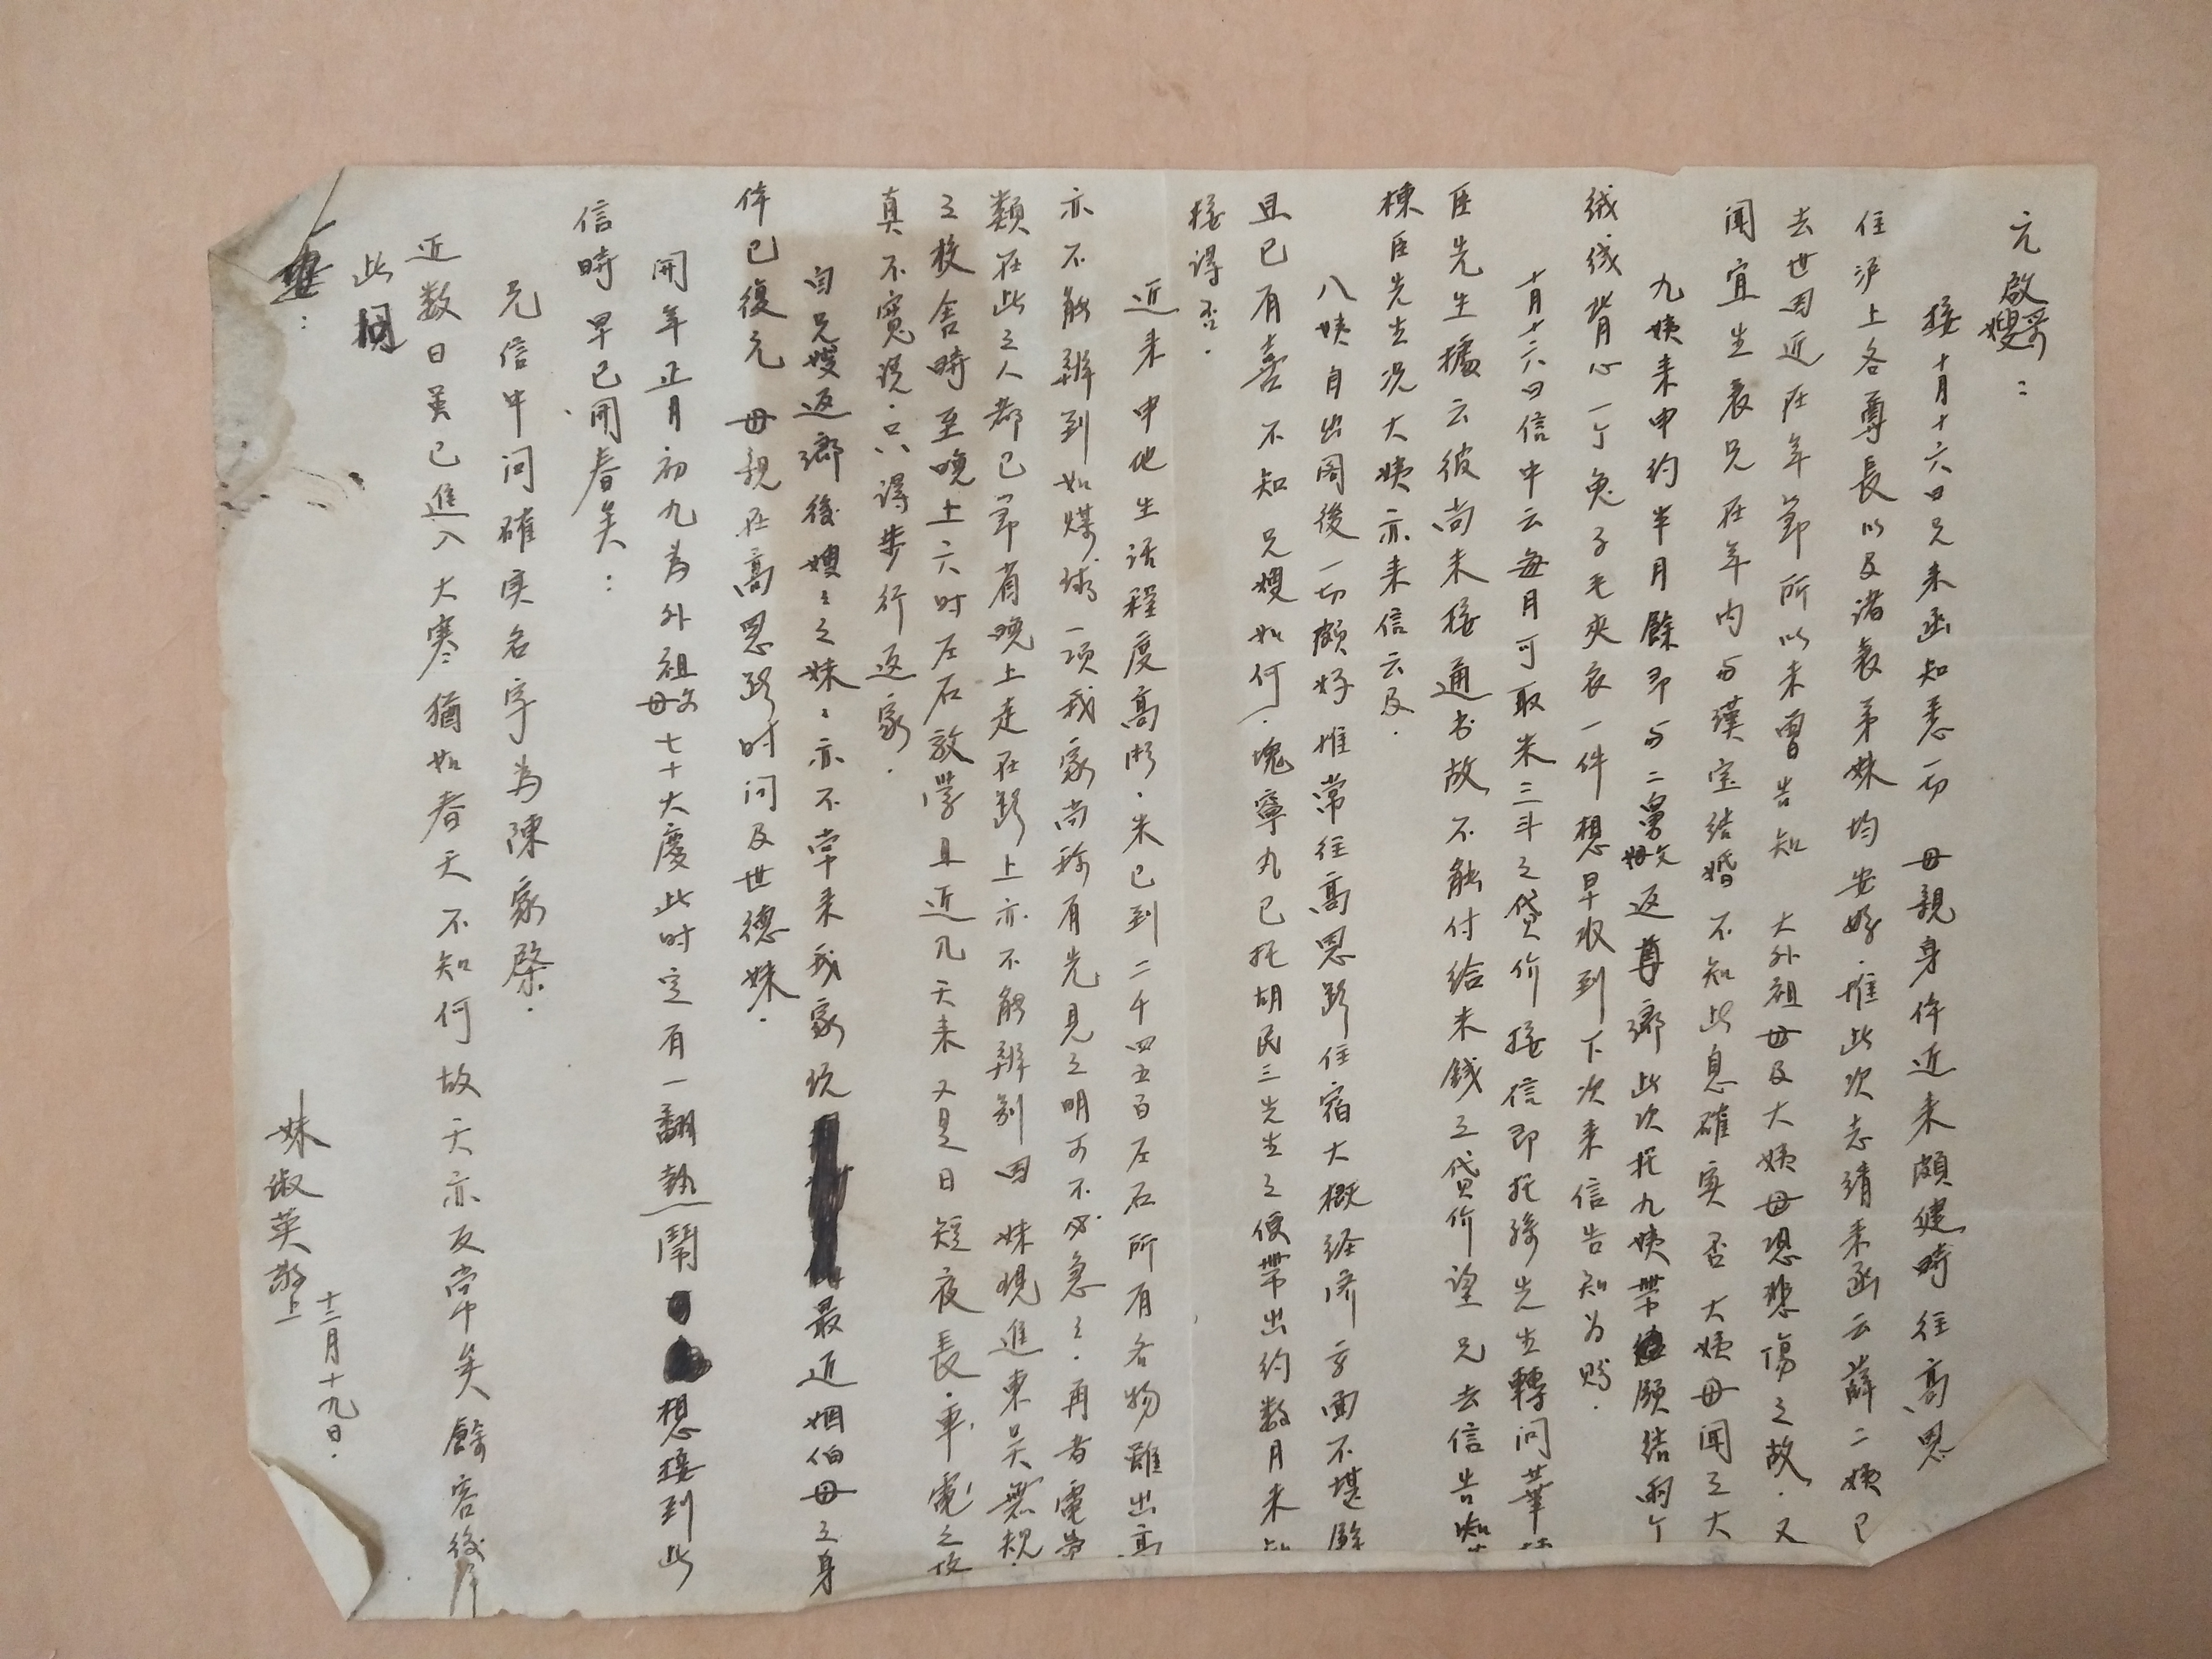 元啟哥嫂：
接十月十六日兄來函知悉一切 母親身体近來頗健時往高恩
住沪上各尊長以及諸表弟妹均安好．惟此次志靖來函云薛二姨已
去世因近在年節所以未曾告知 大外祖母及大姨母恐悲傷之故．又
聞宜生表兄在年內与漢宝结婚不知此息確实否 大姨母聞之大
九姨來申约半月餘即与二舅父母返尊鄉此次托九姨帶 願结兩丁
绒线背心一丁兔子毛夾衣一件想早收到下次來信告知为盼．
十月十六日信中云每月可取米三斗之貸价接信即托孫先生轉问華棟
臣先生據云彼尚未接通书故不能付给米錢之貸价望兄去信告知
棟臣先生况大姨亦来信云及．
八姨自出阁後一切頗好惟常往高恩路住宿大概经济方面不堪餘
且已有喜不知兄嫂如何．塊寧丸已托胡民三先生之便帶出约数月未
接得否．
近来申地生活程度高漲．米已到二千四五百左右所有各物雖出高
亦不能辦到如煤球一项我家尚称有先見之明可不必急之．再者電
類在此之人都已節省晚上走在路上亦不能辨别因妹現進東吴無規．
之校舍時至晚上六时左右放學且近几天来又是日短夜長．車，電之故
真不寬说．只得步行返家．
自兄嫂返鄉後嫂之妹亦不常来我家玩 最近姻伯母之身
体已復元 母親在高恩路时问及世德妹．
開年正月初九为外祖父母七十大慶此时定有一翻熱鬧 想接到此
信時早已開春矣：
兄信中问確实名字为陳家棨．
近数日虽已進入大寒猶如春天不知何故天亦反常矣餘容後
此问
安：
妹淑英敬上
十二月十九日．